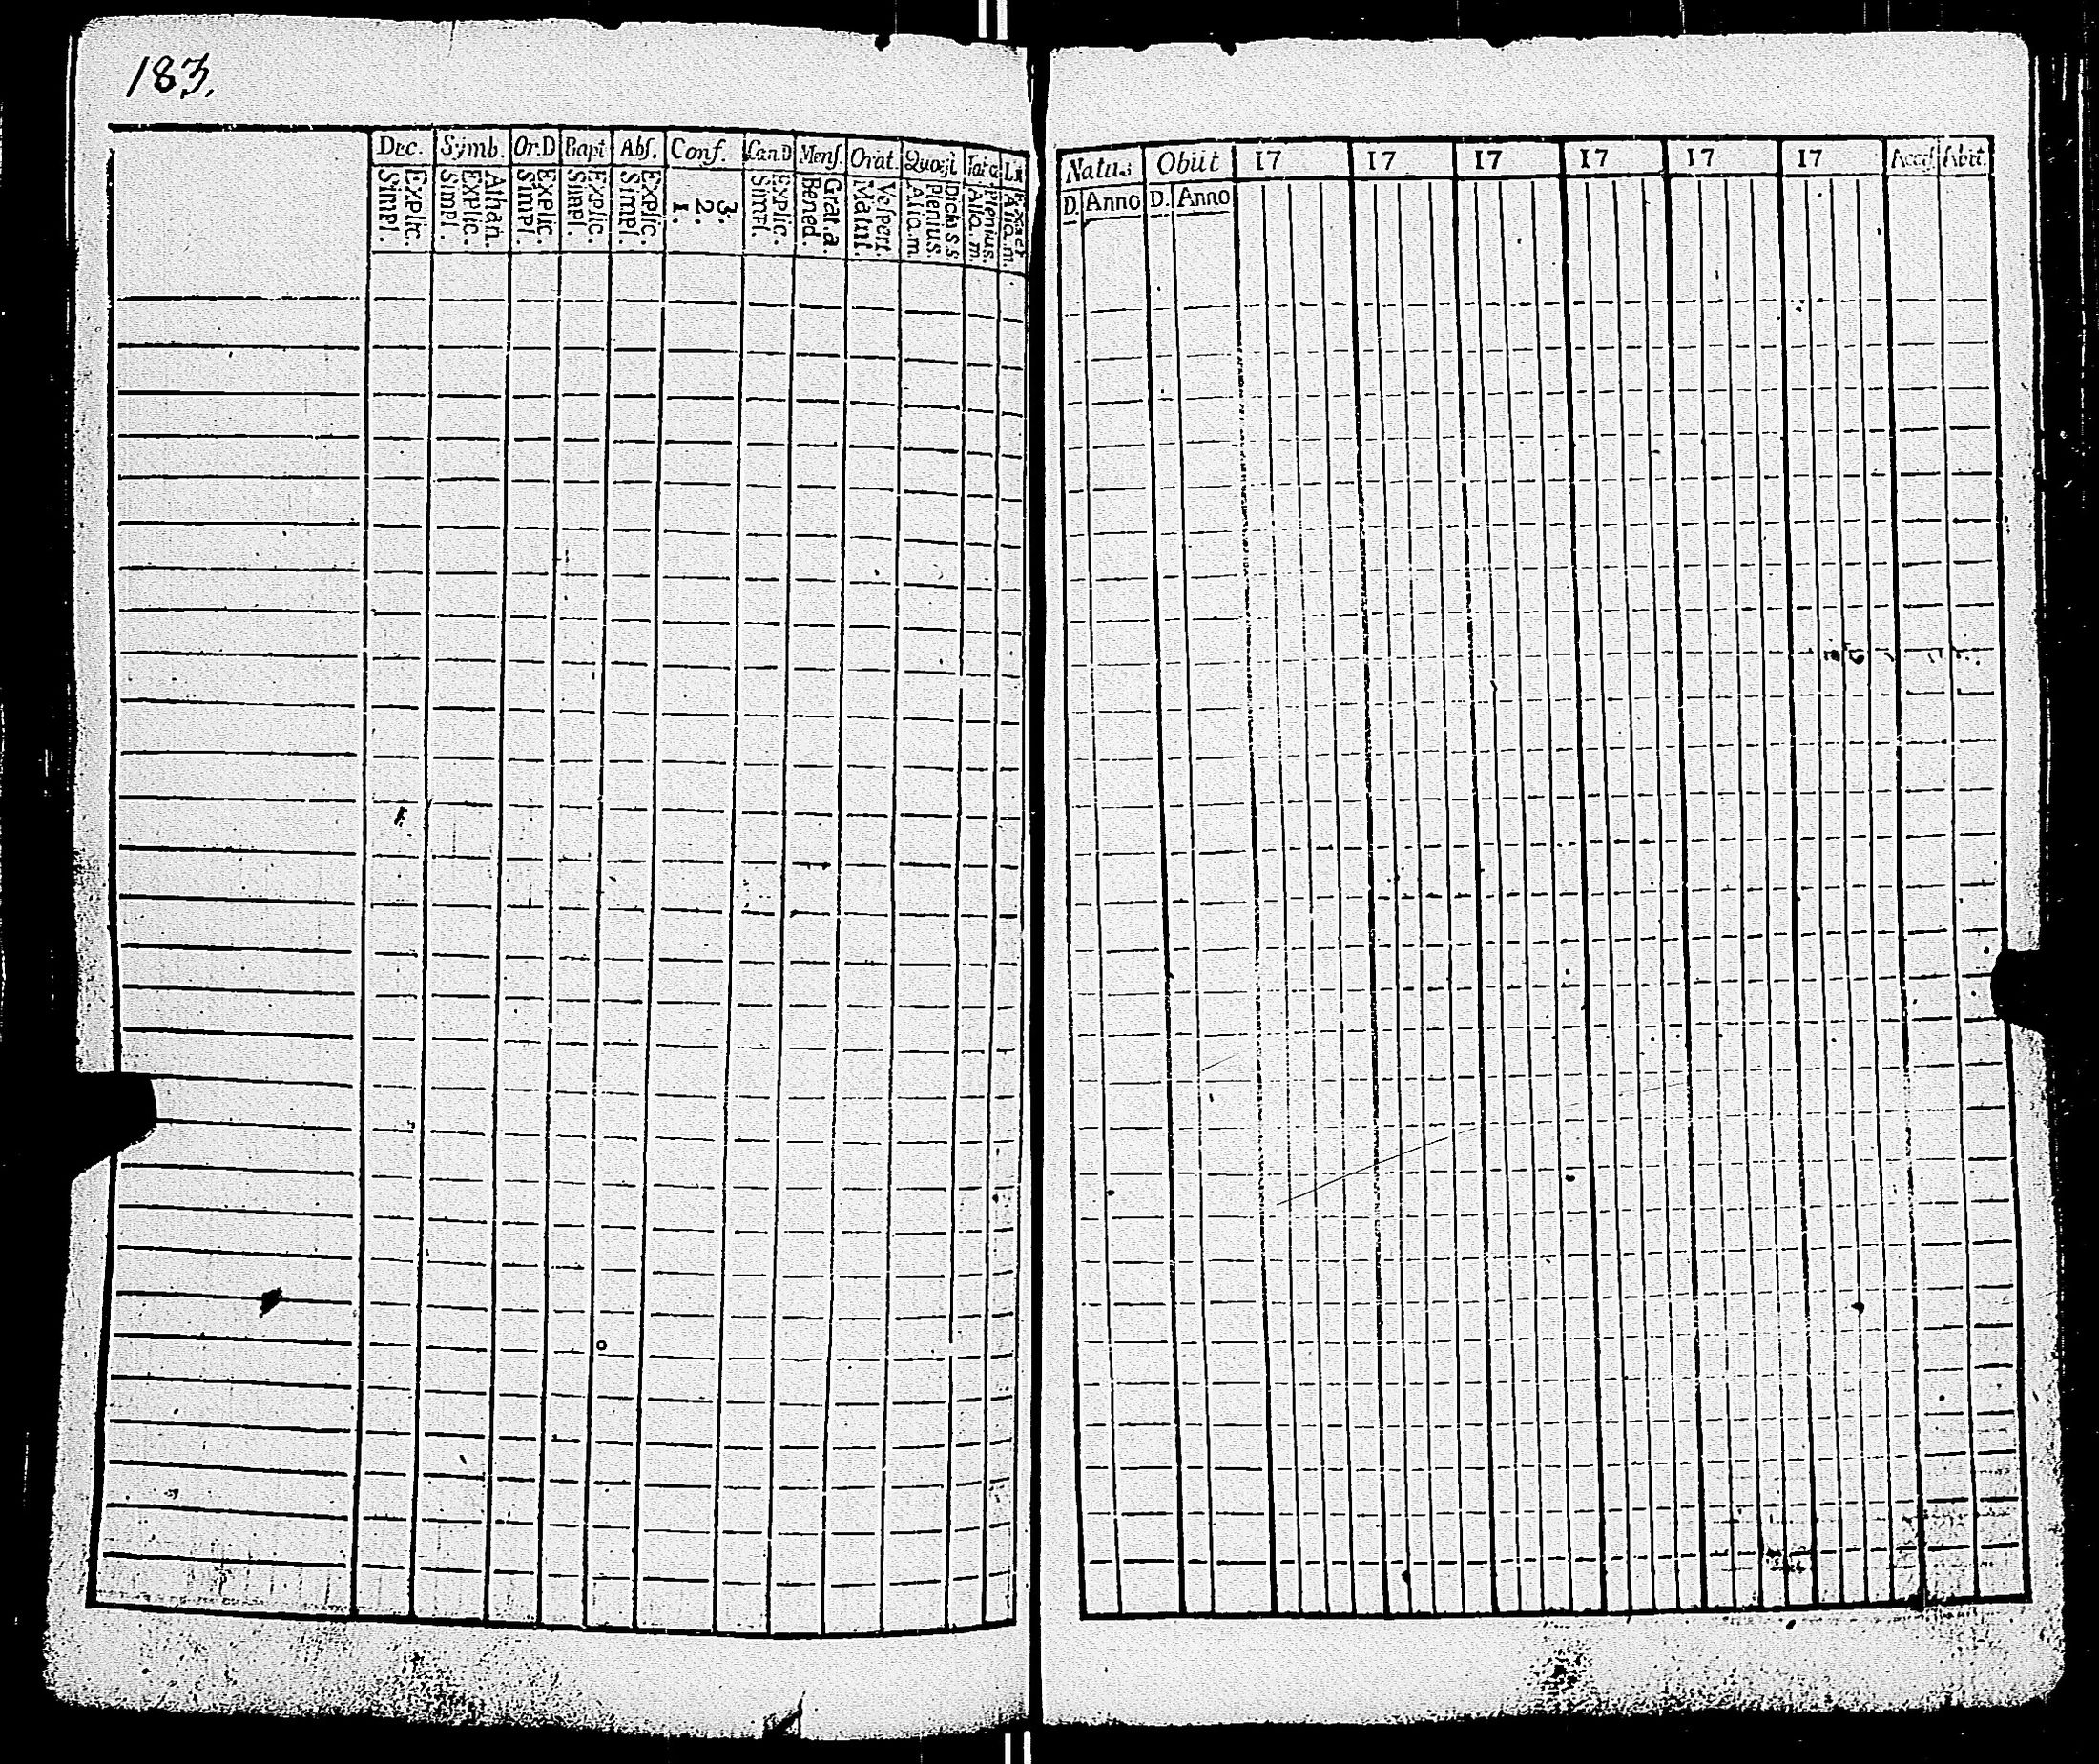 183.
Dec. Symb. Or.D Bapt Abs. Conf. Can.D Mens. Orat. Quæst Tat a
Explic. Simpl. Athan. Explic. Simpl. Explic. Simpl. Explic. Simpl. Explic. Simpl. 3. 2. 1. Explic. Simpl. Grat. a. Bened. Vespert. Matut. Dicta S.S. Plenius. Aliq.m. Plenius. Aliq.m. Aliq.m.
Natus Obiit 17 17 17 17 17 17 Acces. Abiit.
D. Anno D. Anno